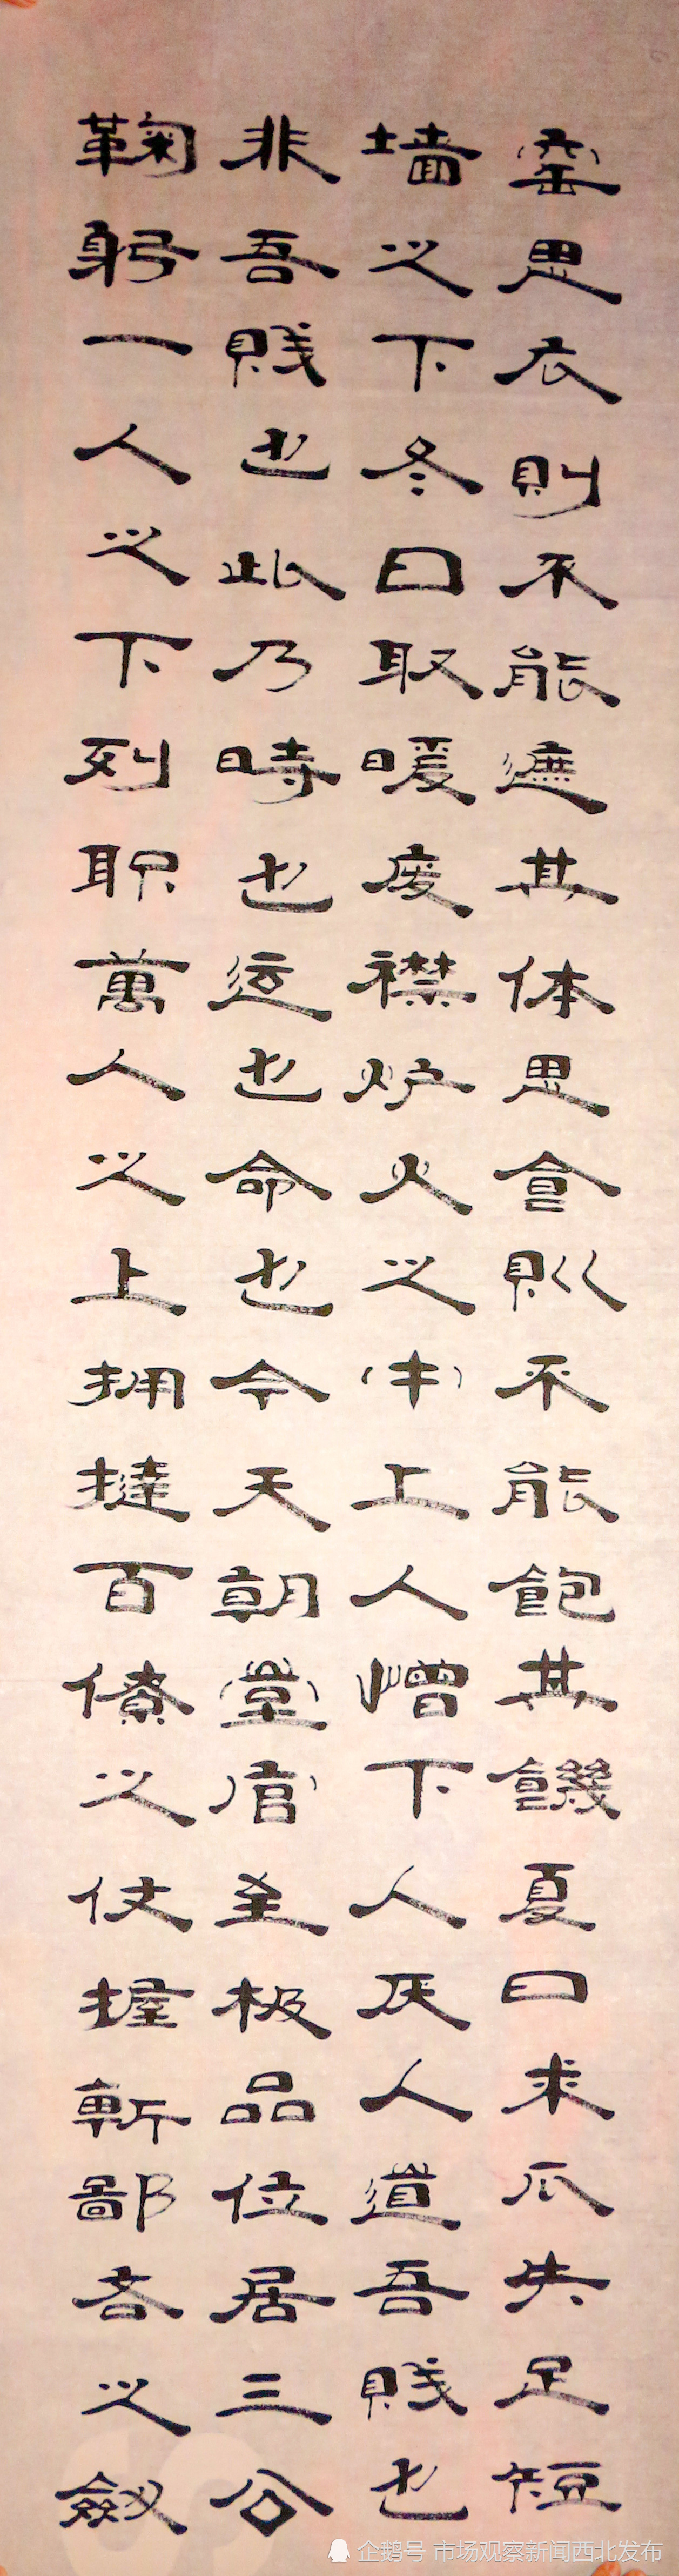 窑思衣則不能遮其体思食則不能飽其饑夏日求瓜失足短
墙之下冬日取暖废襟炉火之中上人憎下人厌人道吾賎也
非吾賎也此乃時也运也命也今天朝堂官至极品位居三公
鞠躬一人之下列职萬人之上拥挞百僚之仗握斬鄙吝之劔
企鹅号 市场观察新闻西北发布